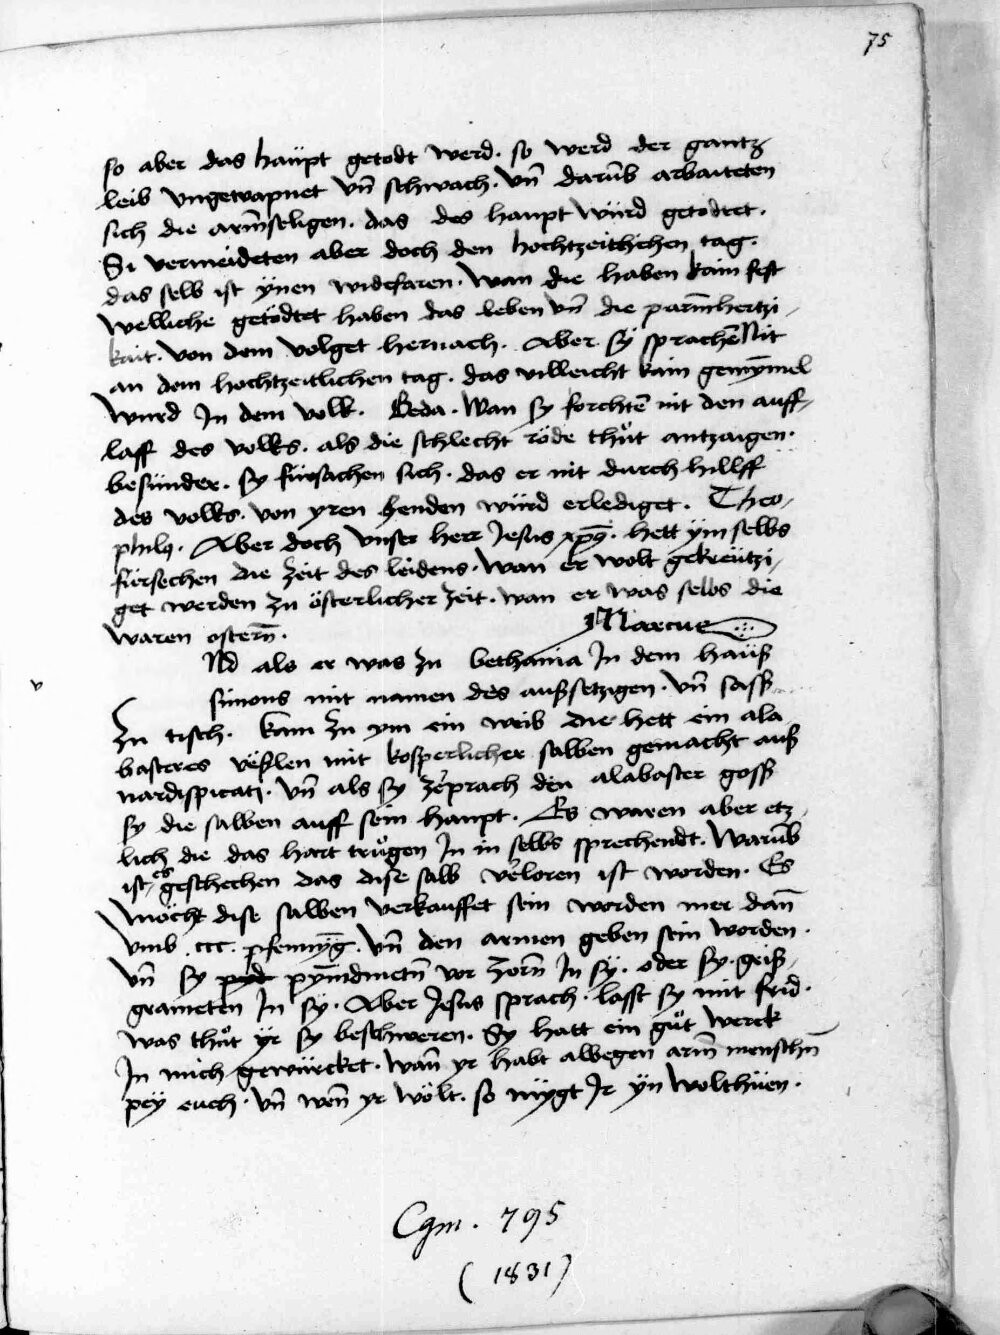 75
so aber das haüpt getodt werd. so werd der gantz
leib vngewapnet vn̄ schwach. vn̄ darūb arbaiteten
sich die arm̄seligen. das des haupt würd getödtet.
Si vermeideten aber doch den hochtzeitlichen tag.
das selb ist ÿnen widefaren. wan die haben kain fest
welliche getödtet haben das leben vn̄ die parm̄hertzi-
kait. von dem volget hernach. Aber sÿ sprachē Nit
an dem hochtzeitlichen tag. das villeicht kain gemȳmel
wurd In dem volk. Beda. Wan sy forchtē nit den auff-
laff des volks. als die schlecht röde thůt antzaigen.
besünder. sy fürsachen sich. das er nit durch hillff
des volks. von yren henden würd erlediget. Theo-
philꝯ. Aber doch vnser herr Jesus xp̄ꝯ. hett ÿm selbs
fürsechen die zeit des leidens. wan er wolt gekreütʒi-
get werden zu österlicher zeit. wan er was selbs die
waren ostern̄.
Marcus
Nd als er was zu bethania In dem haüß
v
simons mit namen des außsetzigen. vn̄ sasß
zu tisch. kam zu ym ein weib die hett ein ala
basteres veßlen mit kosperlicher salben gemacht auß
nardispicati. vn̄ als sy zeprach den alabaster gosß
sy die salben auff sein haupt. Es waren aber etz-
lich die das hart trůgen In in selbs sprechendt. Warūb
ist es geschechen das dise salb verloren ist worden. Es
möcht dise salben verkauffet sein worden mer dan̄
vmb .ccc. pfennȳg. vn̄ den armen geben sein worden.
vn̄ sy pyd pȳmdmetn̄ vor zorn̄ In sÿ. oder sy. griß-
grameten In sÿ. Aber Jesus sprach. lasst sy mit frid.
was thůt ÿr sy beschweren. Sy hatt ein gůt werck
In mich gewürcket. wan̄ yr habt albegen arm̄ menschn̄
peÿ euch. vn̄ wen̄ yr wölt. so mügt Ir ÿn wolthüen.
Cgm. 795
(1831)